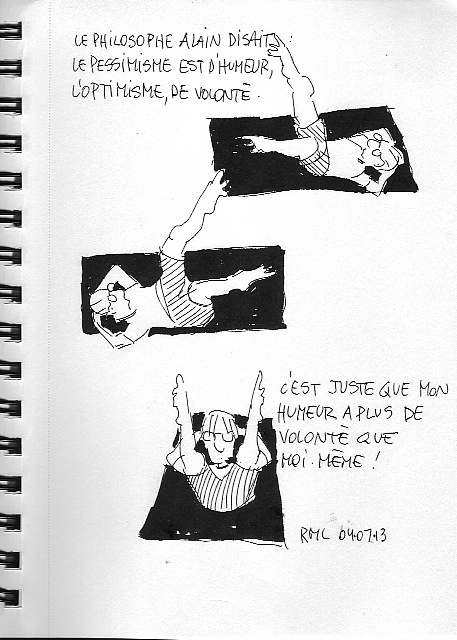 LE PHILOSOPHE ALAIN DISAIT :
LE PESSIMISME EST D'HUMEUR,
L'OPTIMISME, DE VOLONTÈ.
C'EST JUSTE QUE MON
HUMEUR A PLUS DE
VOLONTÈ QUE
MOI-MÊME !
RML 04.07.13